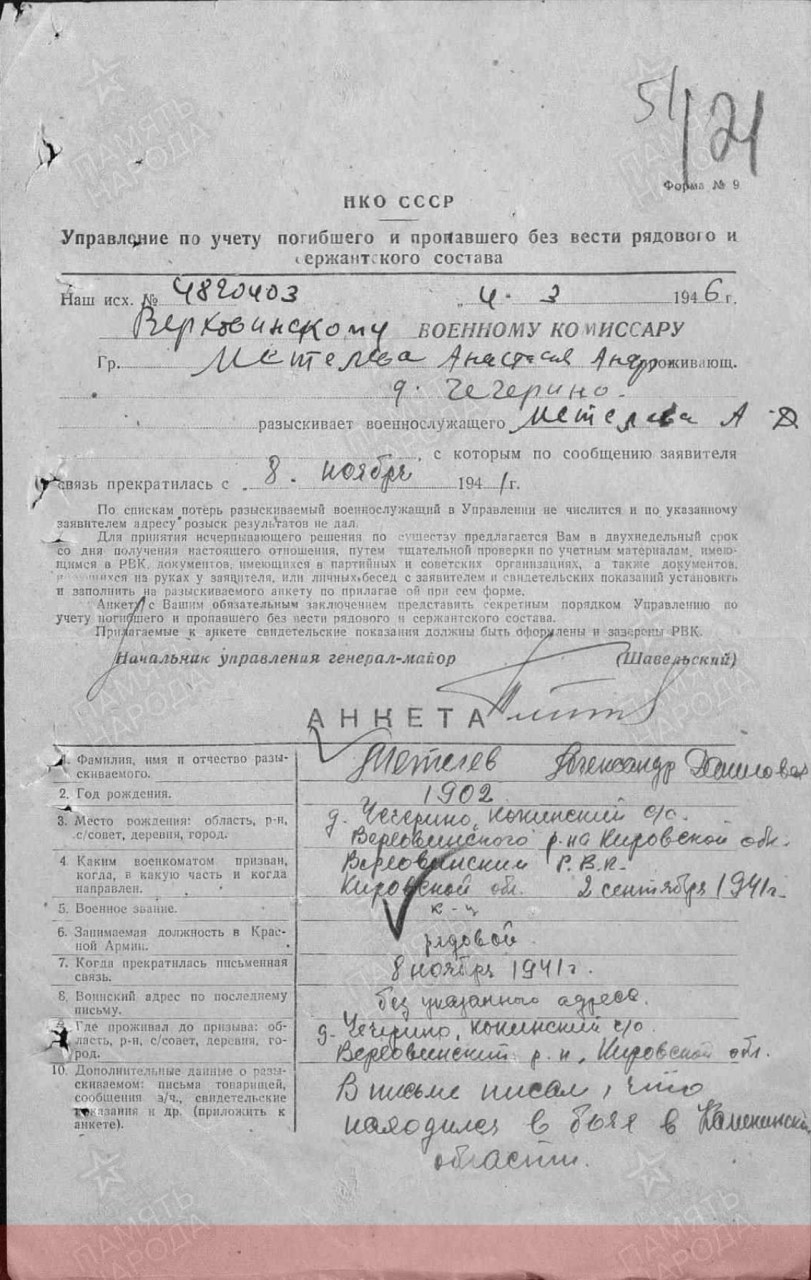 51/121
Форма № 9
НКО СССР
Управление по учету погибшего и пропавшего без вести рядового и
сержантского состава
Наш исх. № 4820403 „4. 3 1946 г.
Верховинскому ВОЕННОМУ КОМИССАРУ
Гр. Метелева Анастасия Андр. проживающ.
д. Чечерино.
разыскивает военнослужащего Метелева А Д
, с которым по сообщению заявителя
связь прекратилась с 8. ноября 1941 г.
По спискам потерь разыскиваемый военнослужащий в Управлении не числится и по указанному
заявителем адресу розыск результатов не дал.
Для принятия исчерпывающего решения по существу предлагается Вам в двухнедельный срок
со дня получения настоящего отношения, путем тщательной проверки по учетным материалам, имею-
щимся в РВК, документов, имеющихся в партийных и советских организациях, а также документов,
имеющихся на руках у заявителя, или личных бесед с заявителем и свидетельских показаний установить
и заполнить на разыскиваемого анкету по прилагае ой при сем форме.
Анкету с Вашим обязательным заключением представить секретным порядком Управлению по
учету погибшего и пропавшего без вести рядового и сержантского состава.
Прилагаемые к анкете свидетельские показания должны быть оформлены и заверены РВК.
Начальник управления генерал-майор (Шавельский)
АНКЕТА
1. Фамилия, имя и отчество разы-
скиваемого.
Метелев Александр Данилович
2. Год рождения.
1902
3. Место рождения: область, р-н,
с/совет, деревня, город.
д. Чечерино, Кокинский с/с.
Верховинского р-на Кировской обл.
4. Каким военкоматом призван,
когда, в какую часть и когда
направлен.
Верховинский Р.В.К.
Кировской обл. 2 сентября 1941г.
5. Военное звание.
к-ц
6. Занимаемая должность в Крас-
ной Армии.
рядовой.
7. Когда прекратилась письменная
связь.
8 ноября 1941г.
8. Воинский адрес по последнему
письму.
без указанного адреса.
9. Где проживал до призыва: об-
ласть, р-н, с/совет, деревня, го-
род.
д. Чечерино, Кокинский с/с
Верховинский р-н, Кировской обл.
10. Дополнительные данные о разы-
скиваемом: письма товарищей,
сообщения з/ч., свидетельские
показания и др. (приложить к
анкете).
В письме писал, что
находился в боях в Калининской
области.
ПАМЯТЬ
НАРОДА